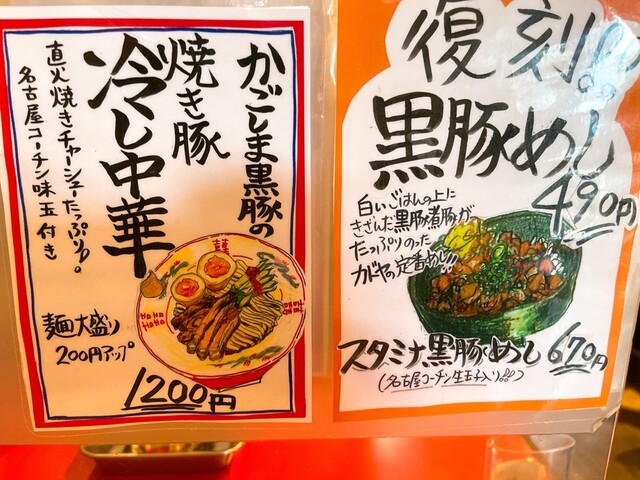 かごしま黒豚の
焼き豚
冷し中華
直火焼きチャーシューたっぷり。
名古屋コーチン味玉付き
麺大盛り
200円アップ
1200円
HAHA
HAHA
復刻!!
黒豚めし
490円
白いごはんの上に
きざんだ黒豚煮豚が
たっぷりのった
カドヤの定番めし!!
スタミナ黒豚めし 670円
(名古屋コーチン生玉子入り!!)